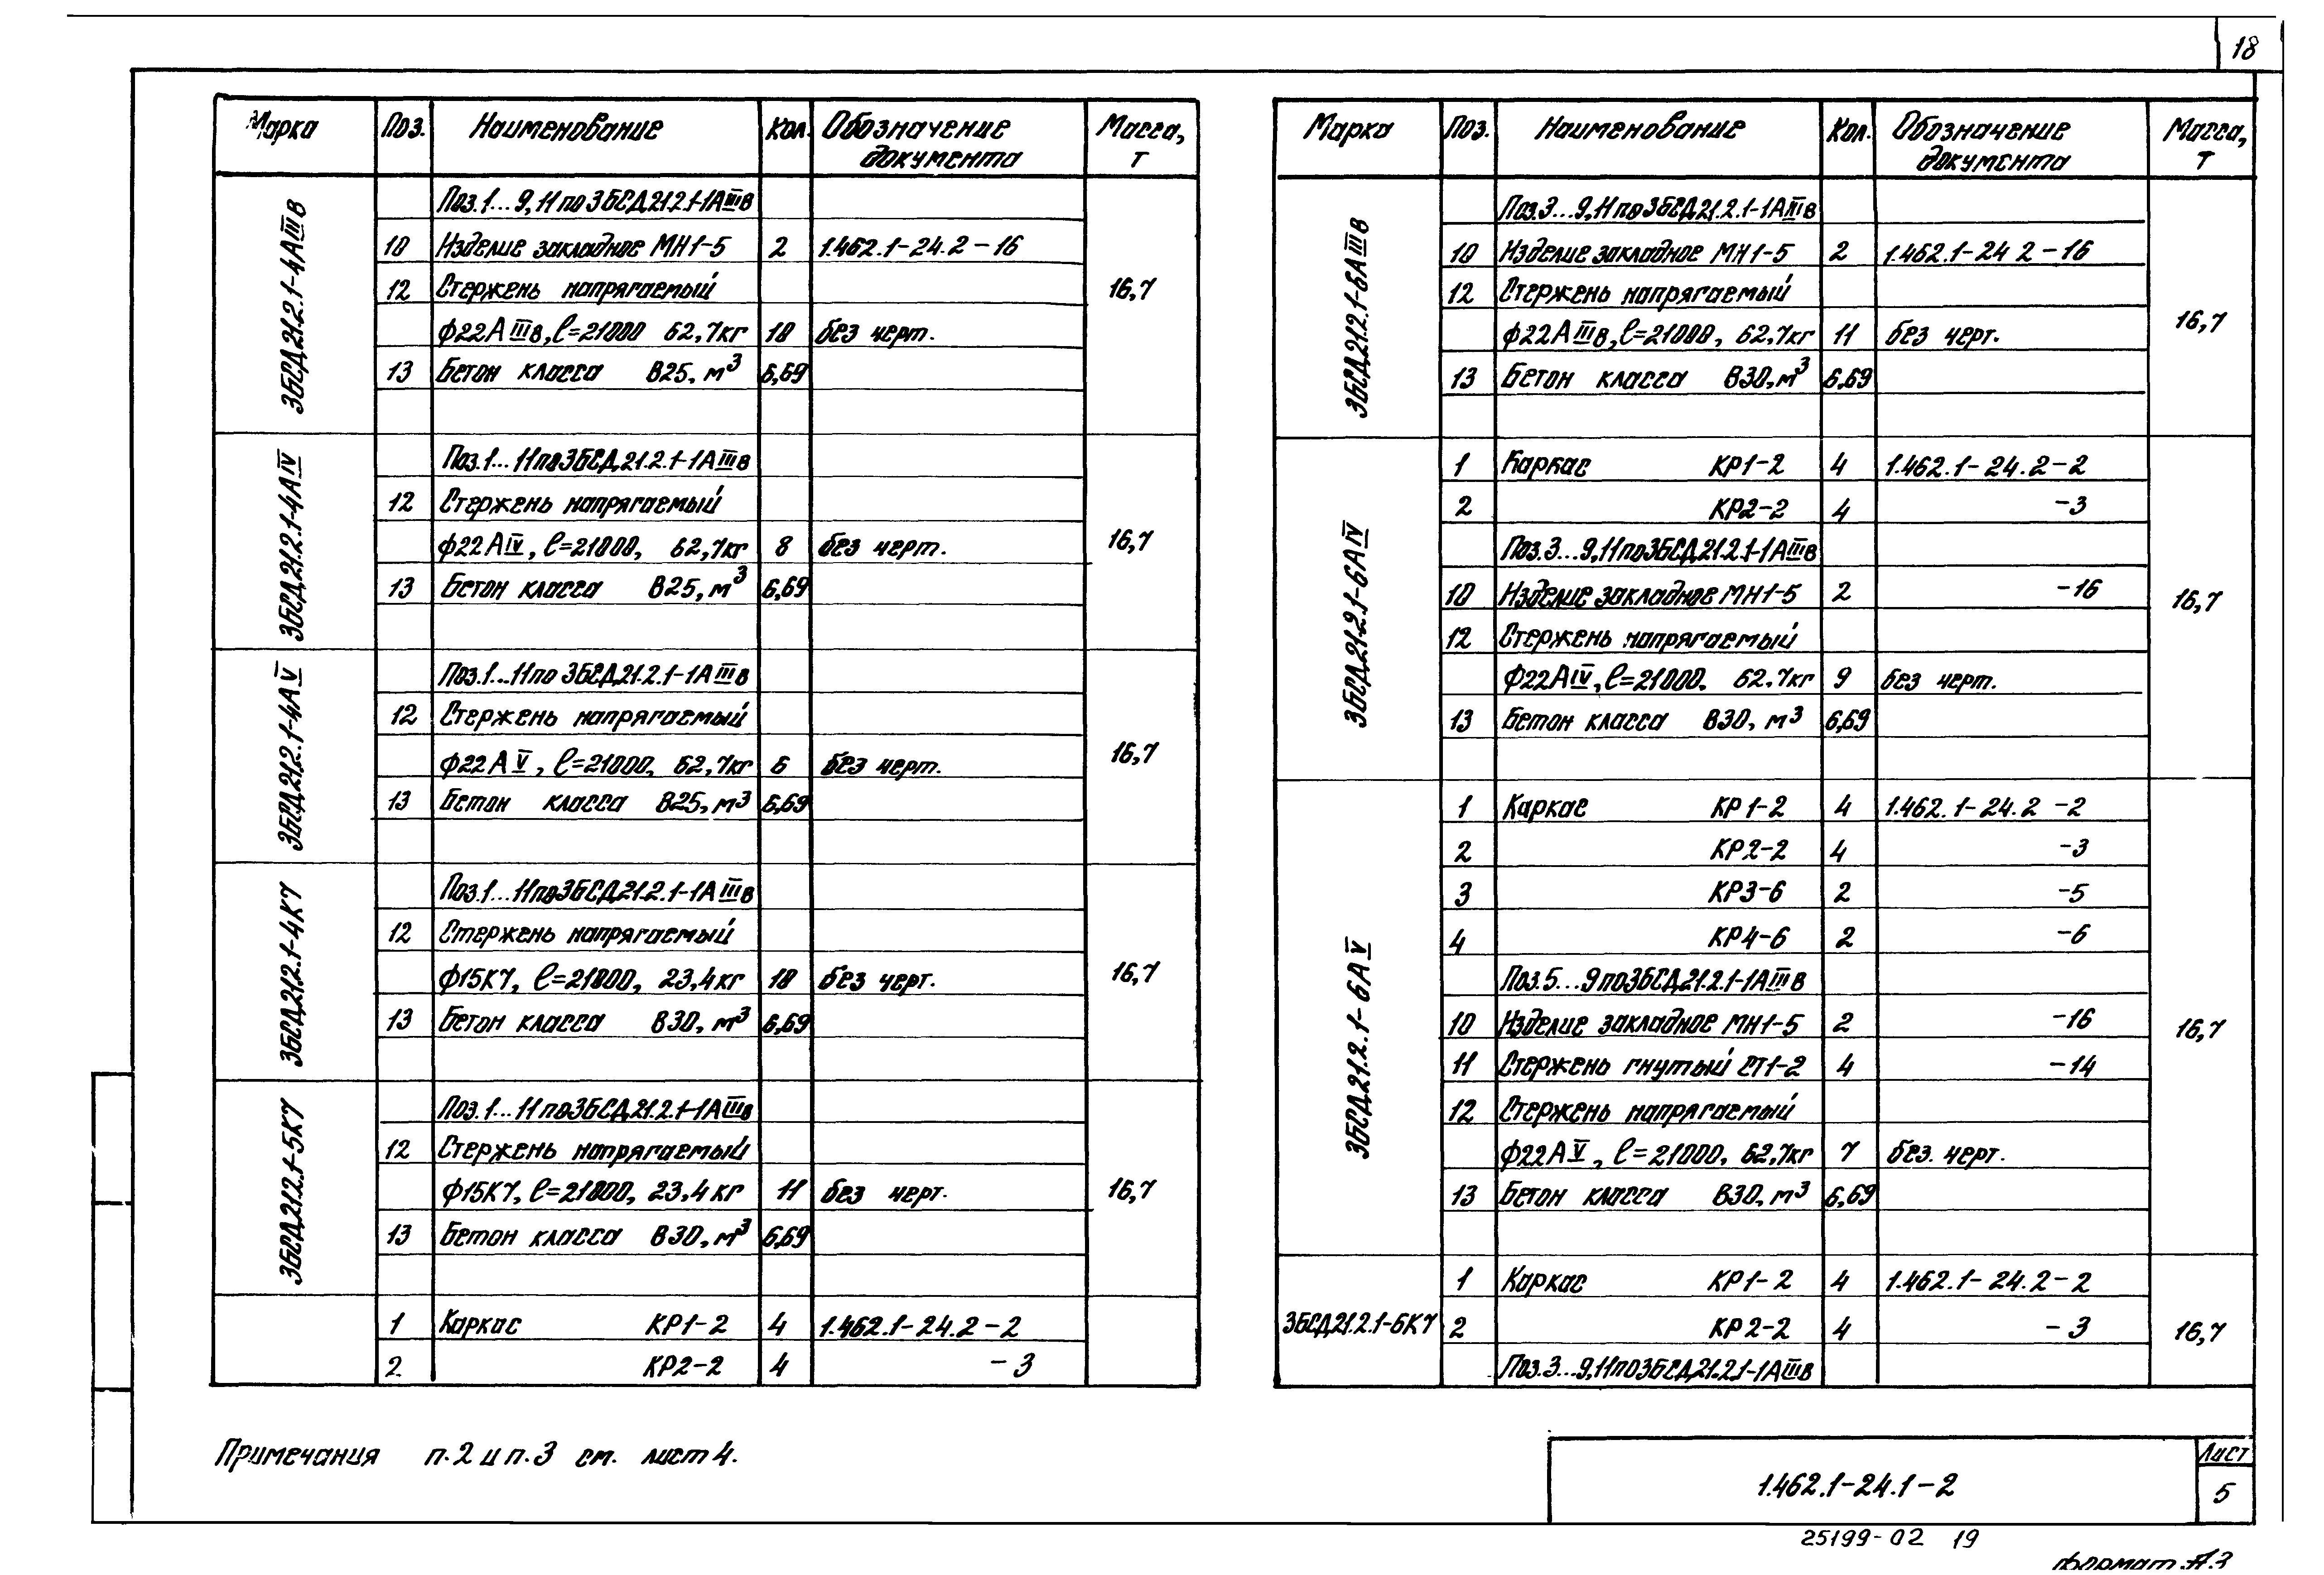 18
Марка Поз. Наименование Кол. Обозначение документа Масса, т
3БСД21.2.1-4АIIIв
Поз.1...9,11 по 3БСД21.2.1-1АIIIв
10 Изделие закладное МН1-5 2 1.462.1-24.2-16
12 Стержень напрягаемый
16,7
ф22АIIIв, ℓ=21000 62,7кг 10 без черт.
13 Бетон класса В25, м³ 6,69
3БСД21.2.1-4АIV
Поз.1...11 по 3БСД21.2.1-1АIIIв
12 Стержень напрягаемый
ф22АIV, ℓ=21000, 62,7кг 8 без черт. 16,7
13 Бетон класса В25, м³ 6,69
3БСД21.2.1-4АV
Поз.1...11 по 3БСД21.2.1-1АIIIв
12 Стержень напрягаемый
ф22АV, ℓ=21000, 62,7кг 6 без черт. 16,7
13 Бетон класса В25, м³ 6,69
3БСД21.2.1-4К7
Поз.1...11 по 3БСД21.2.1-1АIIIв
12 Стержень напрягаемый
ф15К7, ℓ=21000, 23,4кг 10 без черт. 16,7
13 Бетон класса В30, м³ 6,69
3БСД21.2.1-5К7
Поз.1...11 по 3БСД21.2.1-1АIIIв
12 Стержень напрягаемый
ф15К7, ℓ=21000, 23,4кг 11 без черт. 16,7
13 Бетон класса В30, м³ 6,69
1 Каркас КР1-2 4 1.462.1-24.2-2
2. КР2-2 4 -3
Марка Поз. Наименование Кол. Обозначение документа Масса, т
3БСД21.2.1-6АIIIв
Поз.3...9,11 по 3БСД21.2.1-1АIIIв
10 Изделие закладное МН1-5 2 1.462.1-24 2-16
12 Стержень напрягаемый
ф22АIIIв, ℓ=21000, 62,7кг 11 без черт. 16,7
13 Бетон класса В30, м³ 6,69
3БСД21.2.1-6АIV
1 Каркас КР1-2 4 1.462.1-24.2-2
2 КР2-2 4 -3
Поз.3...9,11 по 3БСД21.2.1-1АIIIв
10 Изделие закладное МН1-5 2 -16
16,7
12 Стержень напрягаемый
ф22АIV, ℓ=21000, 62,7кг 9 без черт.
13 Бетон класса В30, м³ 6,69
3БСД21.2.1-6АV
1 Каркас КР1-2 4 1.462.1-24.2-2
2 КР2-2 4 -3
3 КР3-6 2 -5
4 КР4-6 2 -6
Поз.5...9 по 3БСД21.2.1-1АIIIв
10 Изделие закладное МН1-5 2 -16
16,7
11 Стержень гнутый СТ1-2 4 -14
12 Стержень напрягаемый
ф22АV, ℓ=21000, 62,7кг 7 без. черт.
13 Бетон класса В30, м³ 6,69
1 Каркас КР1-2 4 1.462.1-24.2-2
3БСД21.2.1-6К7 2 КР2-2 4 -3 16,7
Поз.3...9,11 по 3БСД21.2.1-1АIIIв
Примечания п.2 и п.3 см. лист 4.
1.462.1-24.1-2
Лист
5
25199-02 19
формат А3